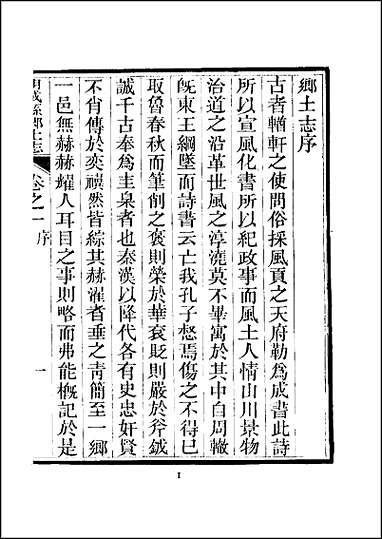 鄉土志序
古者輶軒之使問俗採風貢之天府勒為成書此詩
所以宣風化書所以紀政事而風土人情山川景物
治道之沿革世風之淳澆莫不畢寓於其中自周轍
旣東王綱墜而詩書云亡我孔子愁焉傷之不得已
取魯春秋而筆削之褒則榮於華袞貶則嚴於斧鉞
誠千古奉為圭臬者也秦漢以降代各有史忠奸賢
不肖傳於奕禩然皆綜其赫濯者垂之靑簡至一鄉
一邑無赫赫耀人耳目之事則略而弗能槪記於是
縣鄉土志
卷之一
序
一
1